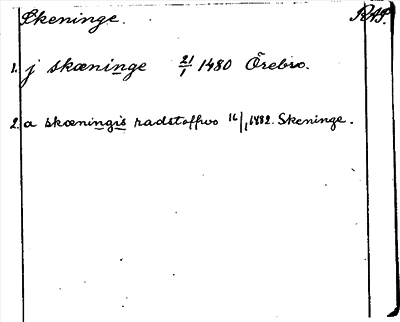 Skeninge. RAP.
1. j skæninge 21/1 1480 Örebro.
2. a skæningis radstoffwo 16/1 1482. Skeninge.